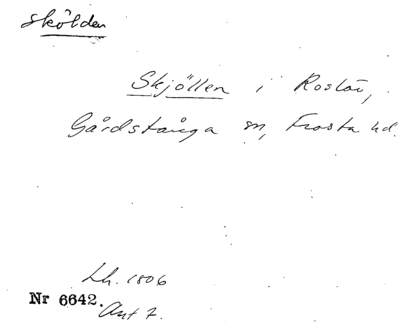 skölden
Skjöllen i Roslöv,
Gårdstånga sn, Frosta hd.
Lh. 1806
Nr 6642. Ant 7.